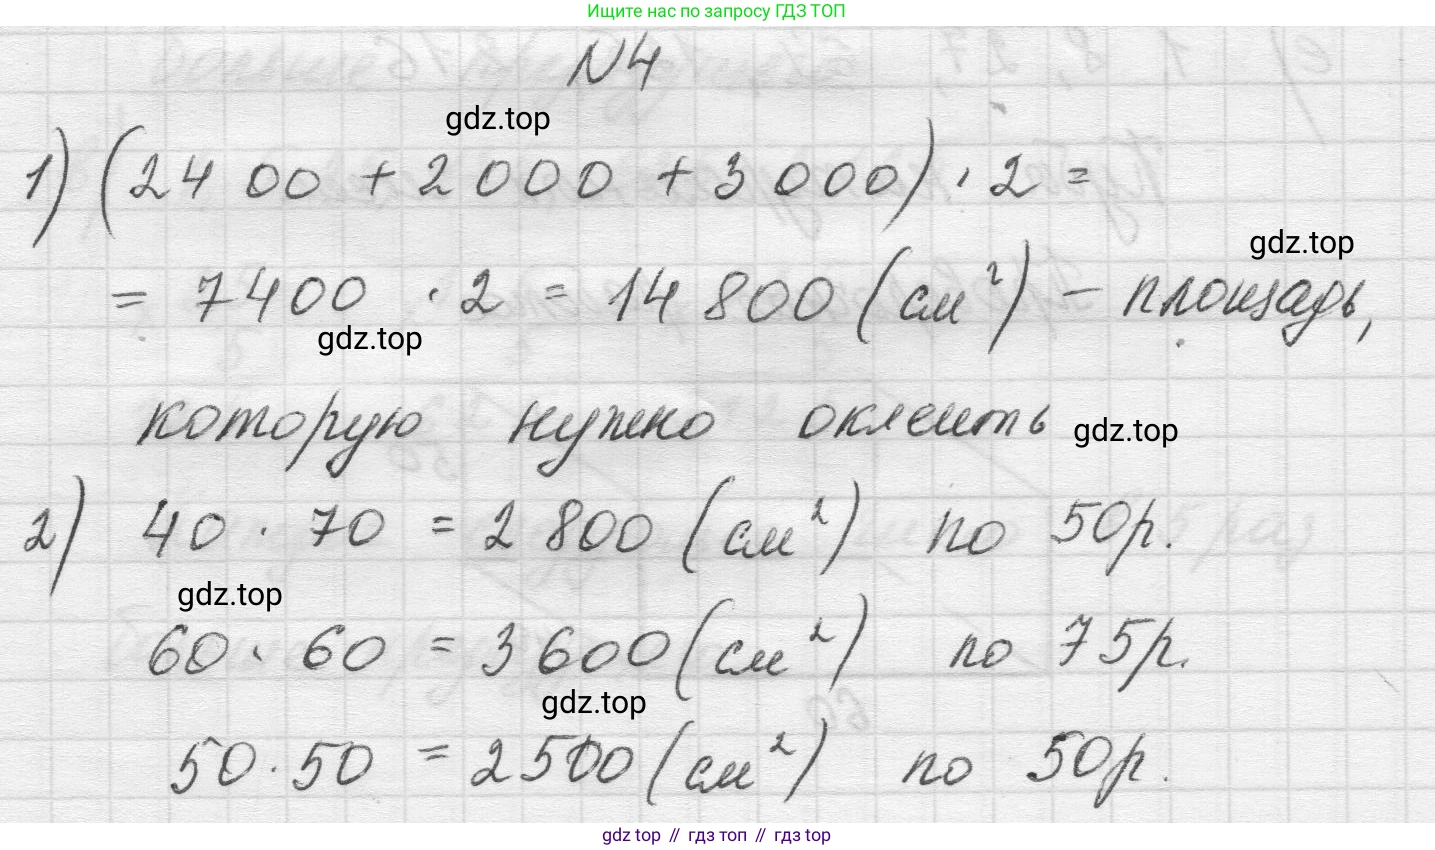 Ищите нас по запросу ГДЗ ТОП
N4
gdz.top
1) (2400 + 2000 + 3000) · 2 =
gdz.top
= 7400 · 2 = 14 800 (см²) – площадь,
gdz.top
которую нужно оклеить
gdz.top
2) 40 · 70 = 2 800 (см²) по 50р.
gdz.top
60 · 60 = 3 600 (см²) по 75р.
gdz.top
50 · 50 = 2500 (см²) по 50р.
gdz top // гдз топ // гдз top